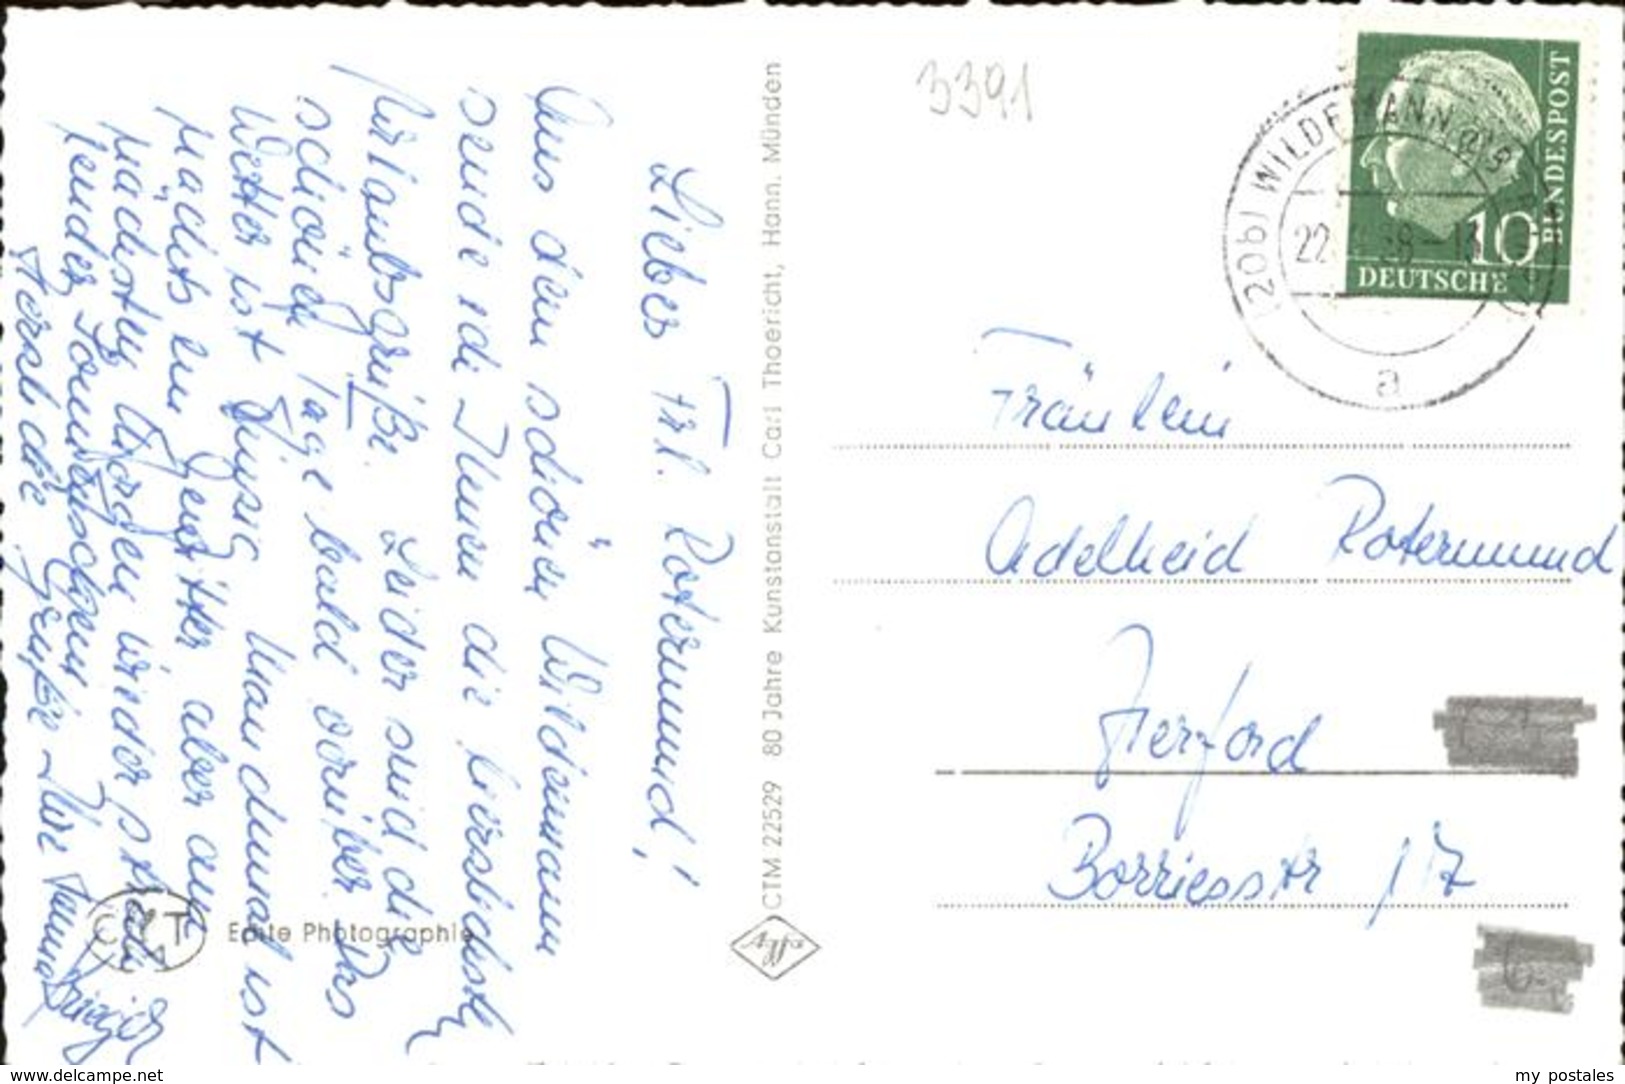 Liebes Frl. Rotermund!
Aus dem schönen Wildemann
sende ich Ihnen die herzlichsten
Urlaubsgrüße. Leider sind die
schönen Tage bald vorüber. Das
Wetter ist Manchmal ist
nachts ein Gewitter aber am
nächsten Morgen wieder
Sonnenschein
Herzliche Grüße Ihre
Echte Photographie
CTM 22529 80 Jahre Kunstanstalt Carl Thoericht, Hann. Münden
3391
(20b) WILDEMANN
22
a
10
DEUTSCHE
BUNDESPOST
Fräulein
Adelheid Rotermund
Herford
Borriesstr 117
delcampe.net
my postales